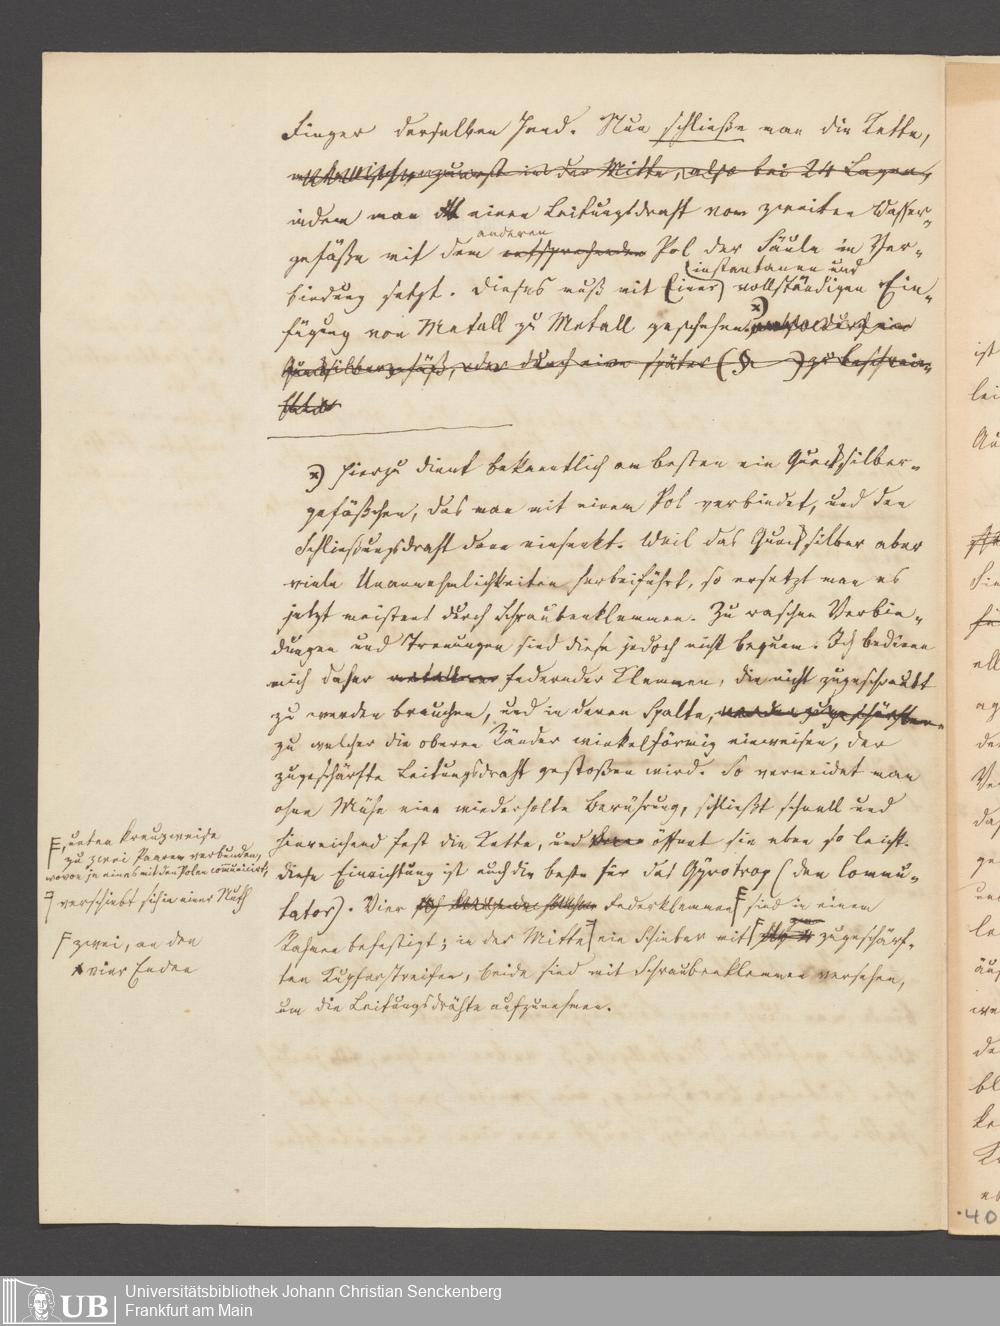 Finger derselben Hand. Nun schließe man die Kette,
zuerst in der Mitte, also bei 24 Lagen,
indem man einen Leitungsdraht vom zweiten Wasser-
anderen
gefäße mit dem entsprechenden Pol der Säule in Ver-
instantanen und
bindung setzt. Dieses muß mit (einer) vollständigen Ein-
fügung von Metall zu Metall geschehen. x)
Quecksilbergefäß, oder durch eine später (§ ) zu beschrei-
x) Hierzu dient bekanntlich am besten ein Quecksilber-
gefäßchen, das man mit einem Pol verbindet, und den
Schließungsdraht darin einsenkt. Weil das Quecksilber aber
viele Unannehmlichkeiten herbeiführt, so ersetzt man es
jetzt meistens durch Schraubenklemmen. Zu raschen Verbin-
dungen und Trennungen sind diese jedoch nicht bequem. Ich bediene
mich daher federnder Klemmen, die nicht zugeschraubt
zu werden brauchen, und in deren Spalte,
zu welcher die oberen Ränder winkelförmig einweisen, der
zugeschärfte Leitungsdraht gestoßen wird. So vermeidet man
ohne Mühe eine wiederholte Berührung, schließt schnell und
hinreichend fest die Kette, und öffnet sie eben so leicht.
Diese Einrichtung ist auch die beste für das Gyrotrop (den Commu-
tator). Vier Federklemmen sind in einem
Rahmen befestigt; in der Mitte ein Schieber mit zugeschärf-
ten Kupferstreifen, beide sind mit Schraubenklemmen versehen,
um die Leitungsdrähte aufzunehmen.
unten kreuzweise
zu zwei Paaren verbunden,
wovon je eines mit den Polen communicirt;
verschiebt sich in einer Nuth
zwei, an den
vier Enden
ist
lei
ell
de
Ve
das
ge
und
äuß
de
bl
40
UB
Universitätsbibliothek Johann Christian Senckenberg
Frankfurt am Main